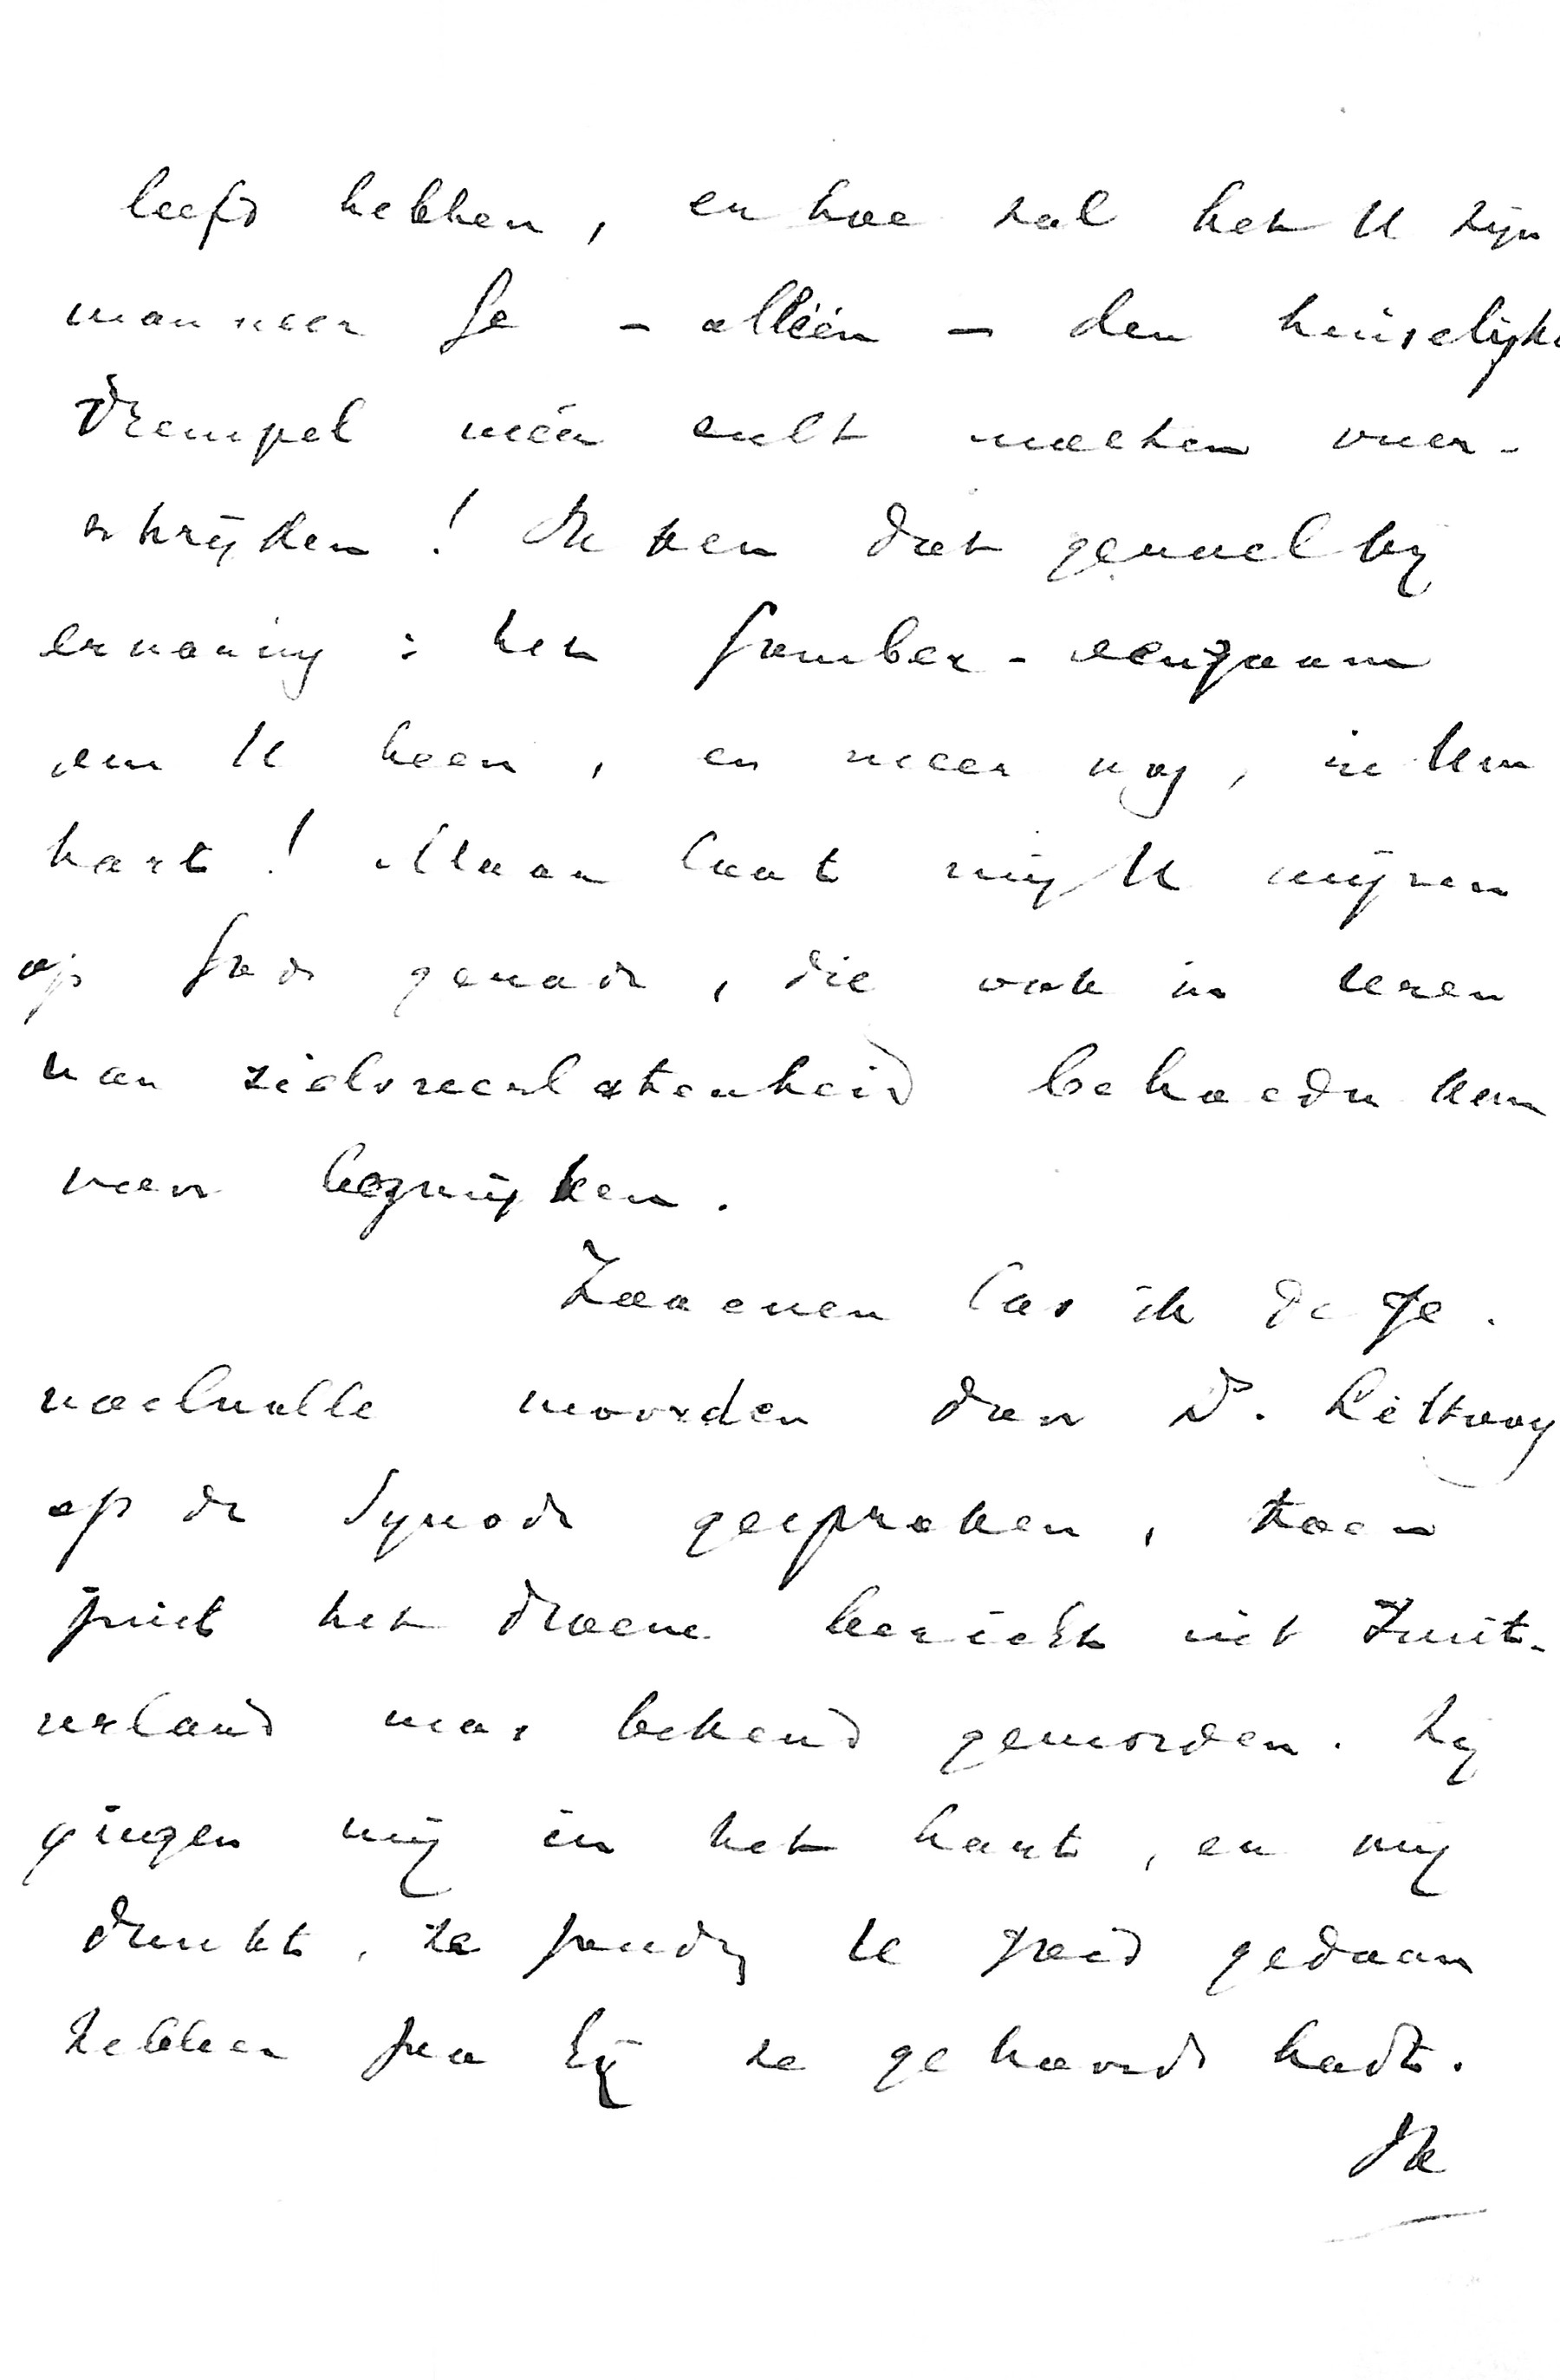 leefd hebben, en hoe zal het U zijn
wanneer Ge – alléén – den huiselijke
drempel wéér zult moeten over-
schrijden! Ik ken dat gevoel bij
ervaring: het somber-eenzaam
om U heen, en meer nog, in Uw
hart! Maar laat mij U wijzen
op Gods genade, die ook in uren
van zielsverlatenheid behoeden kan
voor bezwijken.
Zooeven las ik de ge-
voelvolle woorden door D.
op de Synode gesproken, toen
juist het droeve bericht uit Zwit-
serland was bekend geworden. Zij
gingen mij in het hart, en mij
dunkt, ze zouden U goed gedaan
hebben zoo Gij ze gehoord hadt.
Ik